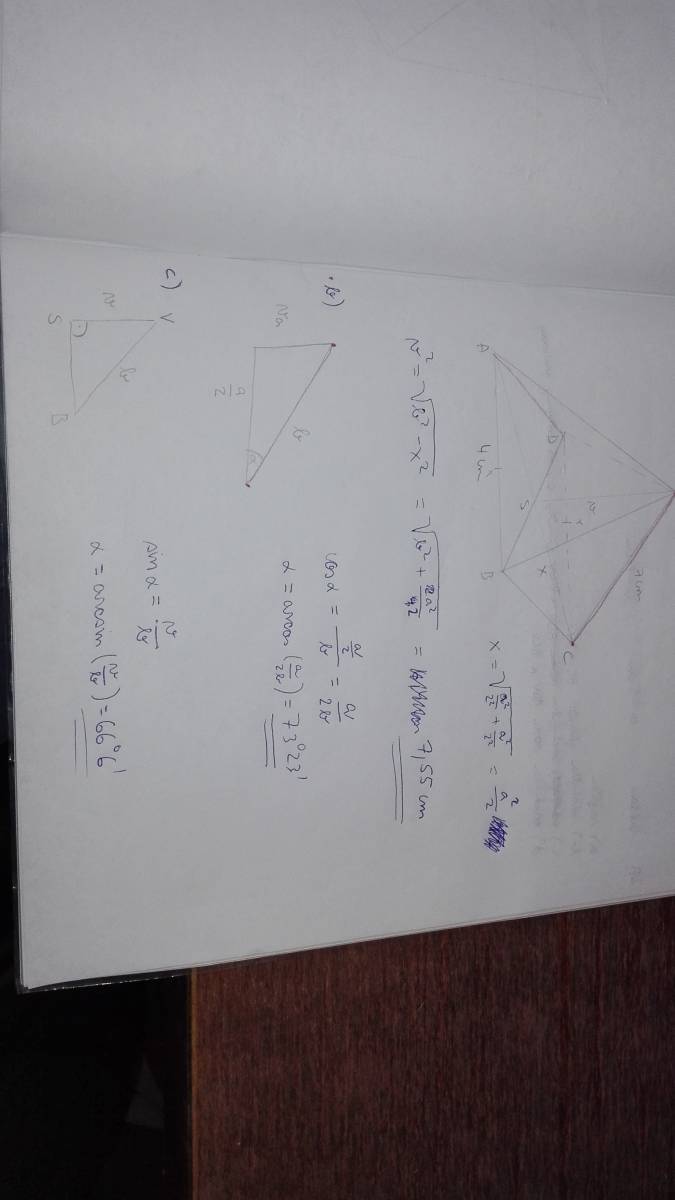 7 cm
C
D
v
S
x
A
4 cm
B
x = √(a²/2² + a²/2²) = a²/2
v² = √(b² - x²) = √(b² + 2a²/4²) = 7,55 cm
b)
va
b
a/2
α
cos α = (a/2)/b = a/2b
α = arccos (a/2b) = 73°23'
c)
V
v
b
S
B
sin α = v/b
α = arcsin (v/b) = 66°6'